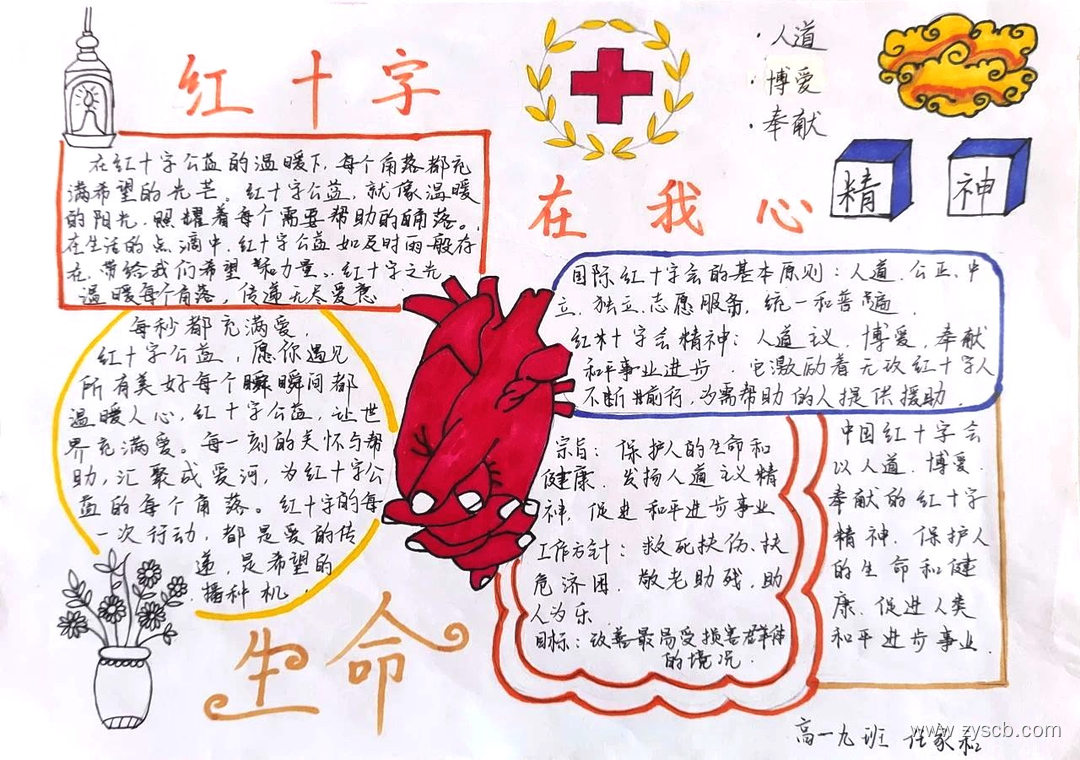 红十字
·人道
·博爱
·奉献
在我心
精神
在红十字公益的温暖下，每个角落都充
满希望的光芒。红十字公益，就像温暖
的阳光，照耀着每个需要帮助的角落。
在生活的点滴中，红十字公益如及时雨般存
在，带给我们希望和力量。红十字之光
温暖每个角落，传递无尽爱意
每秒都充满爱，
红十字公益，愿你遇见
所有美好每个瞬瞬间都
温暖人心，红十字公益，让世
界充满爱。每一刻的关怀与帮
助，汇聚成爱河，为红十字公
益的每个角落。红十字的每
一次行动，都是爱的传
递，是希望的
播种机，
国际红十字会的基本原则：人道、公正、中
立、独立、志愿服务，统一和普遍
红十字会精神：人道主义，博爱，奉献
和平事业进步．它激励着无数红十字人
不断前行，为需帮助的人提供援助．
宗旨：保护人的生命和
健康．发扬人道主义精
神，促进和平进步事业
工作方针：救死扶伤、扶
危济困．敬老助残，助
人为乐
目标：改善最易受损害群体
的境况．
中国红十字会
以人道．博爱．
奉献的红十字
精神．保护人
的生命和健
康．促进人类
和平进步事业．
生命
高一九班 任家和
www.zyscb.com